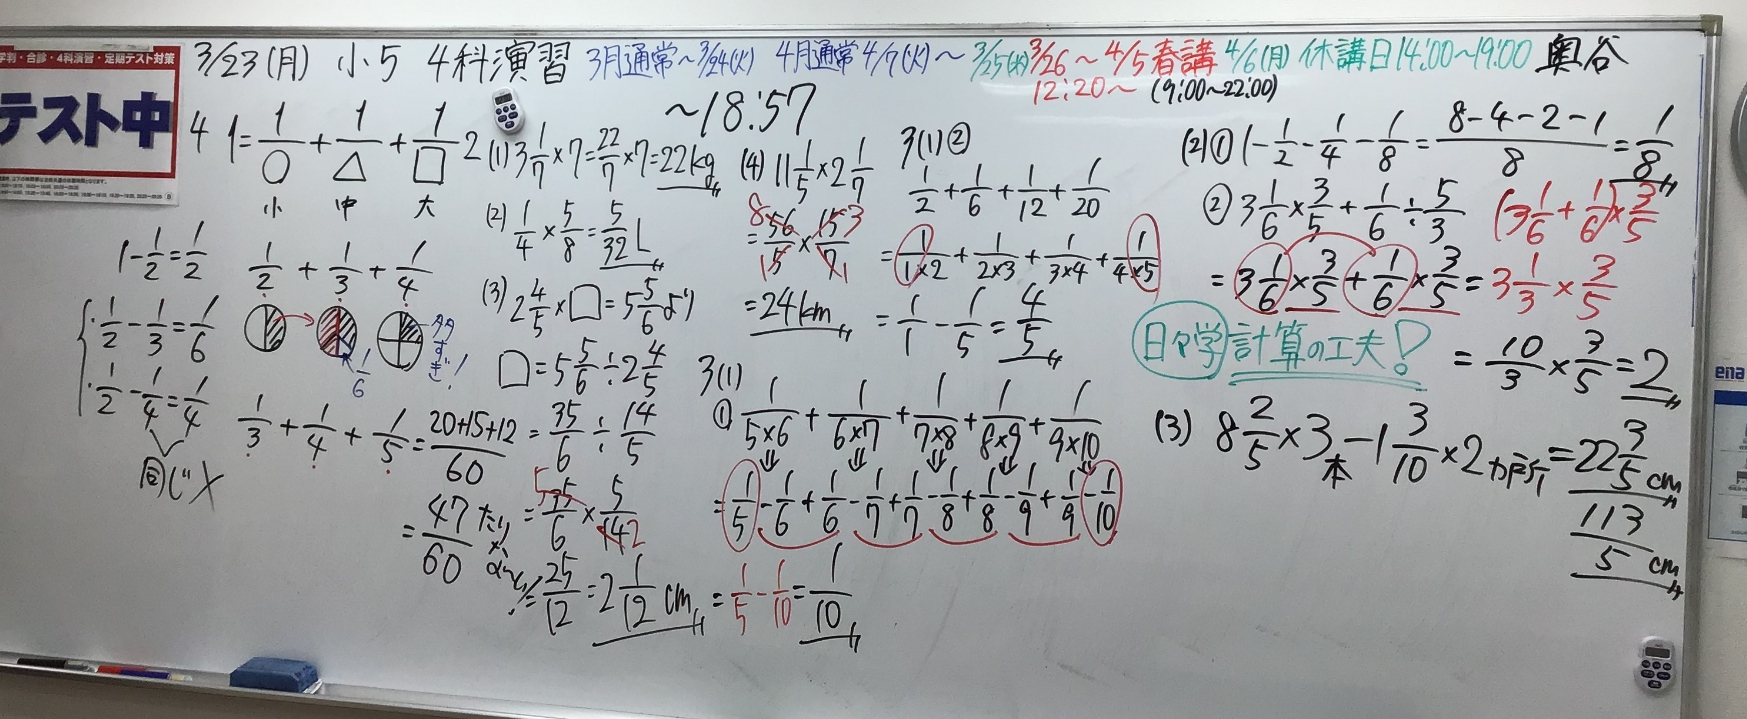 学判・合診・4科演習・定期テスト対策
テスト中
3/23(月) 小5 4科演習 3月通常〜3/24(火) 4月通常4/7(火)〜 3/25(水) 3/26〜4/5春講 4/6(月) 休講日14:00〜19:00 奥谷
12:20〜 (9:00〜22:00)
〜18:57
4 1=1/○+1/△+1/□
小 中 大
1-1/2=1/2
1/2+1/3+1/4
1/2-1/3=1/6
1/2-1/4=1/4
同じ×
1/6
多すぎ!
1/3+1/4+1/5=(20+15+12)/60
=47/60 たりない!
2 (1) 3 1/7×7=22/7×7=22kg
(2) 1/4×5/8=5/32L
(3) 2 4/5×□=5 5/6より
□=5 5/6÷2 4/5
=35/6÷14/5
=35/6×5/14 5 2
=25/12=2 1/12cm
(4) 11 1/5×2 1/7
=56/5×15/7 8 3 1 1
=24km
3(1)②
1/2+1/6+1/12+1/20
=1/(1×2)+1/(2×3)+1/(3×4)+1/(4×5)
=1/1-1/5=4/5
3(1)
① 1/(5×6)+1/(6×7)+1/(7×8)+1/(8×9)+1/(9×10)
⇓ ⇓ ⇓ ⇓ ⇓
=1/5-1/6+1/6-1/7+1/7-1/8+1/8-1/9+1/9-1/10
=1/5-1/10=1/10
(2)① 1-1/2-1/4-1/8=(8-4-2-1)/8=1/8
② 3 1/6×3/5+1/6÷5/3 (3 1/6+1/6)×3/5
=3 1/6×3/5+1/6×3/5=3 1/3×3/5
日々学 計算の工夫!
=10/3×3/5=2
(3) 8 2/5×3本-1 3/10×2ヵ所=22 3/5cm
113/5cm
ena